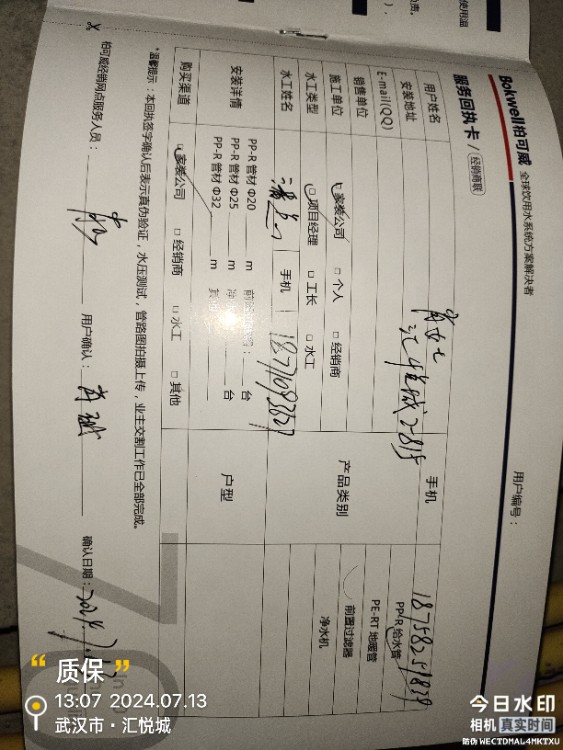 Bokwell柏可威 全球饮用水系统方案解决者
用户编号：
服务回执卡 / 经销商联
用户姓名
手机
安装地址
汇悦城2-815
E-mail(QQ)
销售单位
产品类别
PP-R 给水管
PE-RT 地暖管
前置过滤器
净水机
施工单位
□ 家装公司 □ 个人 □ 经销商
水工类型
□ 项目经理 □ 工长 □ 水工
水工姓名
手机
安装详情
PP-R 管材 Φ20 m
台
PP-R 管材 Φ25 m
台
PP-R 管材 Φ32 m
户型
购买渠道
□ 家装公司 □ 经销商 □ 水工 □ 其他
*温馨提示：本回执签字确认后表示真伪验证，水压测试，管路图拍摄上传，业主交割工作已全部完成。
柏可威经销网点服务人员：
用户确认：
确认日期：2024.7.13
使用温
“质保”
13:07 2024.07.13
武汉市·汇悦城
今日水印
相机 真实时间
防伪 WECTDMAL4MKTXU